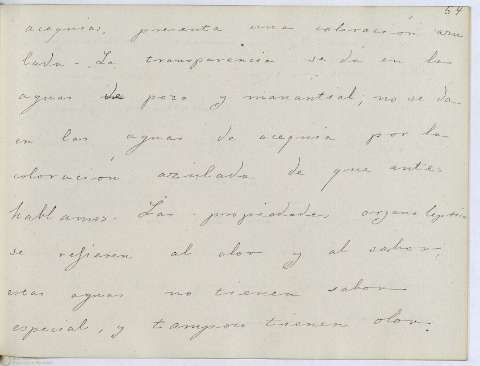 54
acequias, presenta una coloración azu
lada. La transparencia se da en las
aguas de pozo y manantial; no se da
en las aguas de acequia por la
coloración azulada de que antes
hablamos. Las propiedades organolepticas
se refieren al olor y al sabor;
estas aguas no tienen sabor
especial, y tampoco tienen olor.